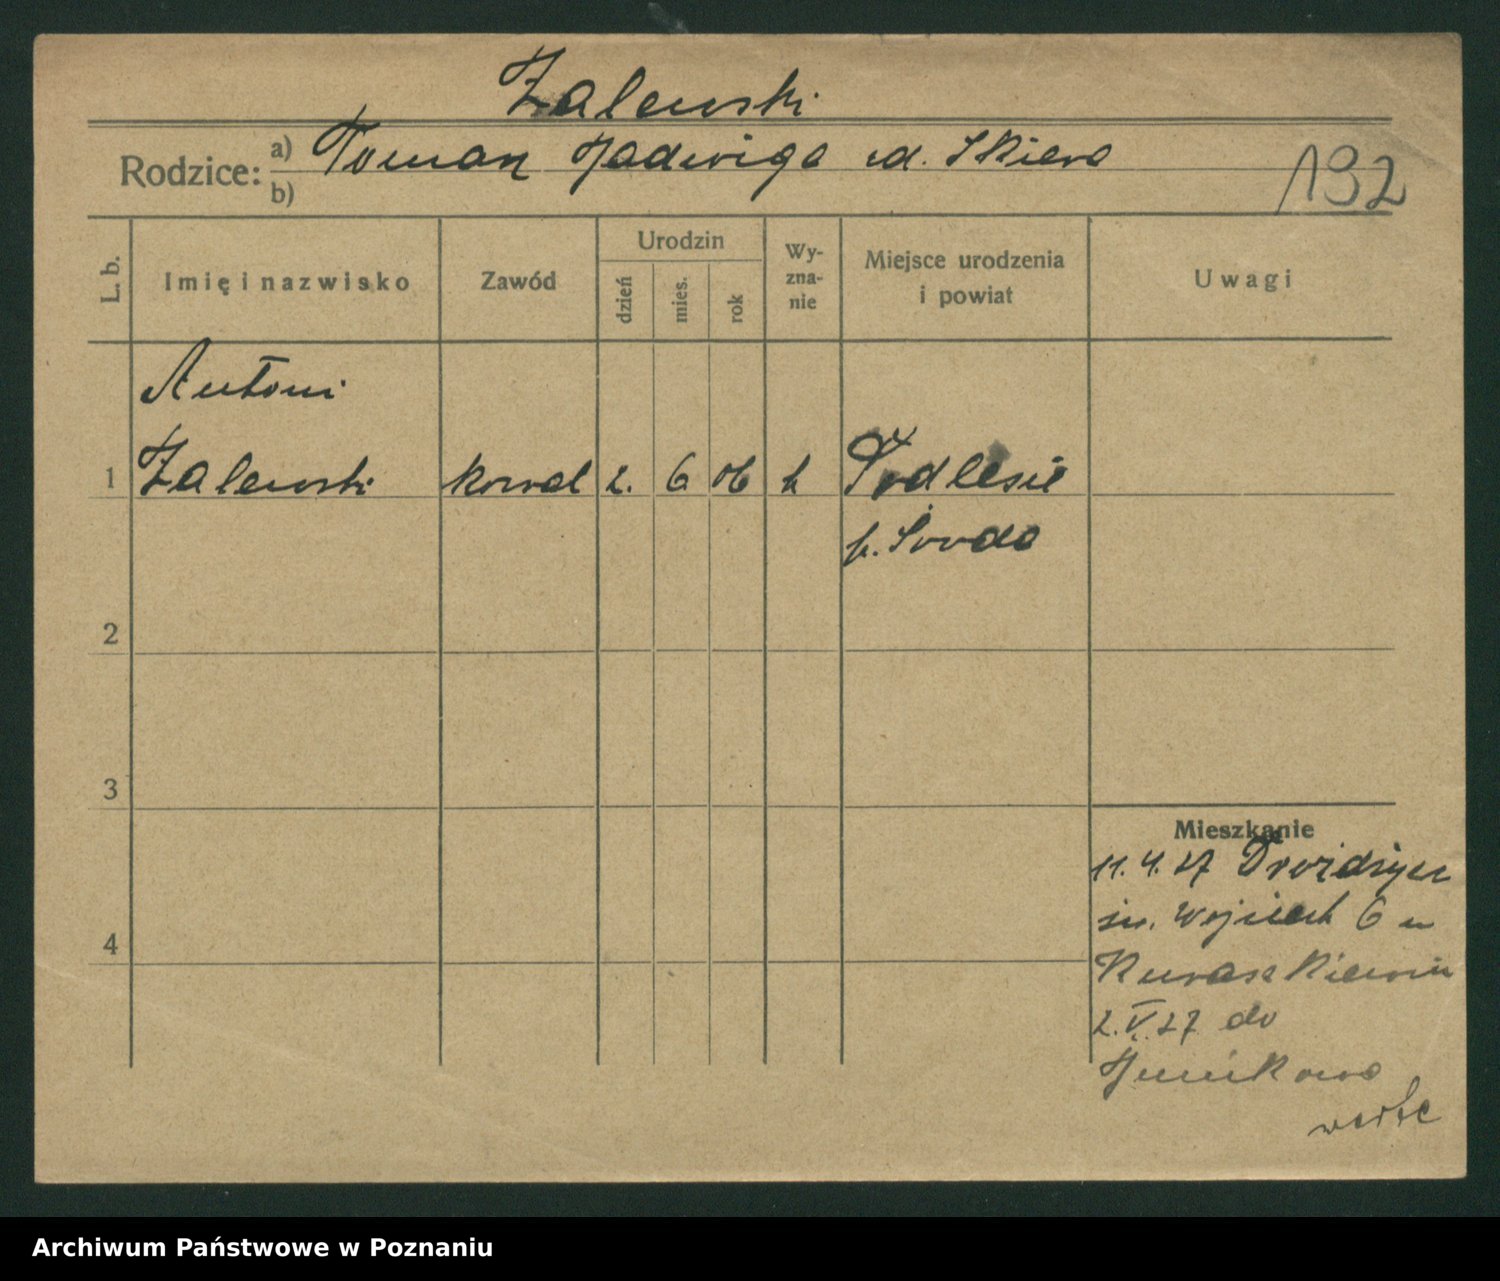 Zalewski
Rodzice: a) Roman Jadwiga zd. Skiera
b)
192
L. b.
Imię i nazwisko
Zawód
Urodzin
dzień
mies.
rok
Wy-
zna-
nie
Miejsce urodzenia
i powiat
Uwagi
Antoni
1 Zalewski kowal 2. 6 06 k Podlesie
p. Środa
2
3
Mieszkanie
11.4.27
św. Wojciech 6 u
4
2.V.27 do
Junikowo
Archiwum Państwowe w Poznaniu